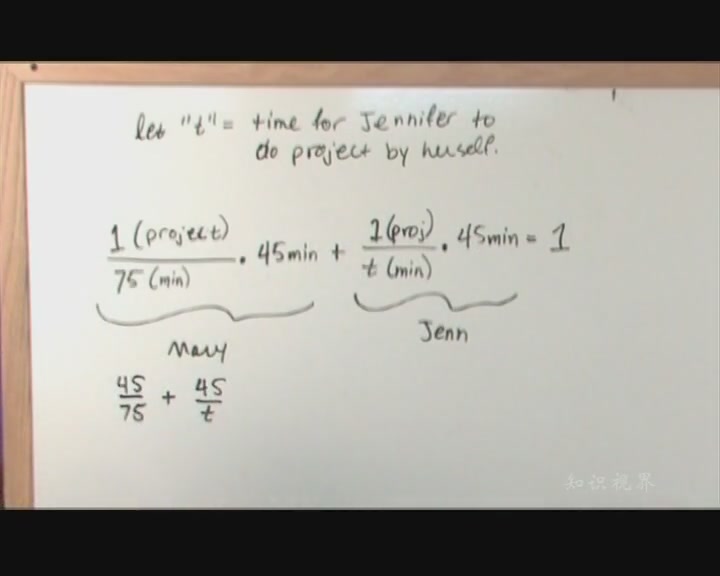 let "t" = time for Jennifer to
do project by herself.
1 (project) / 75 (min) · 45min + 1 (proj) / t (min) · 45min = 1
Mary Jenn
45/75 + 45/t
知识视界